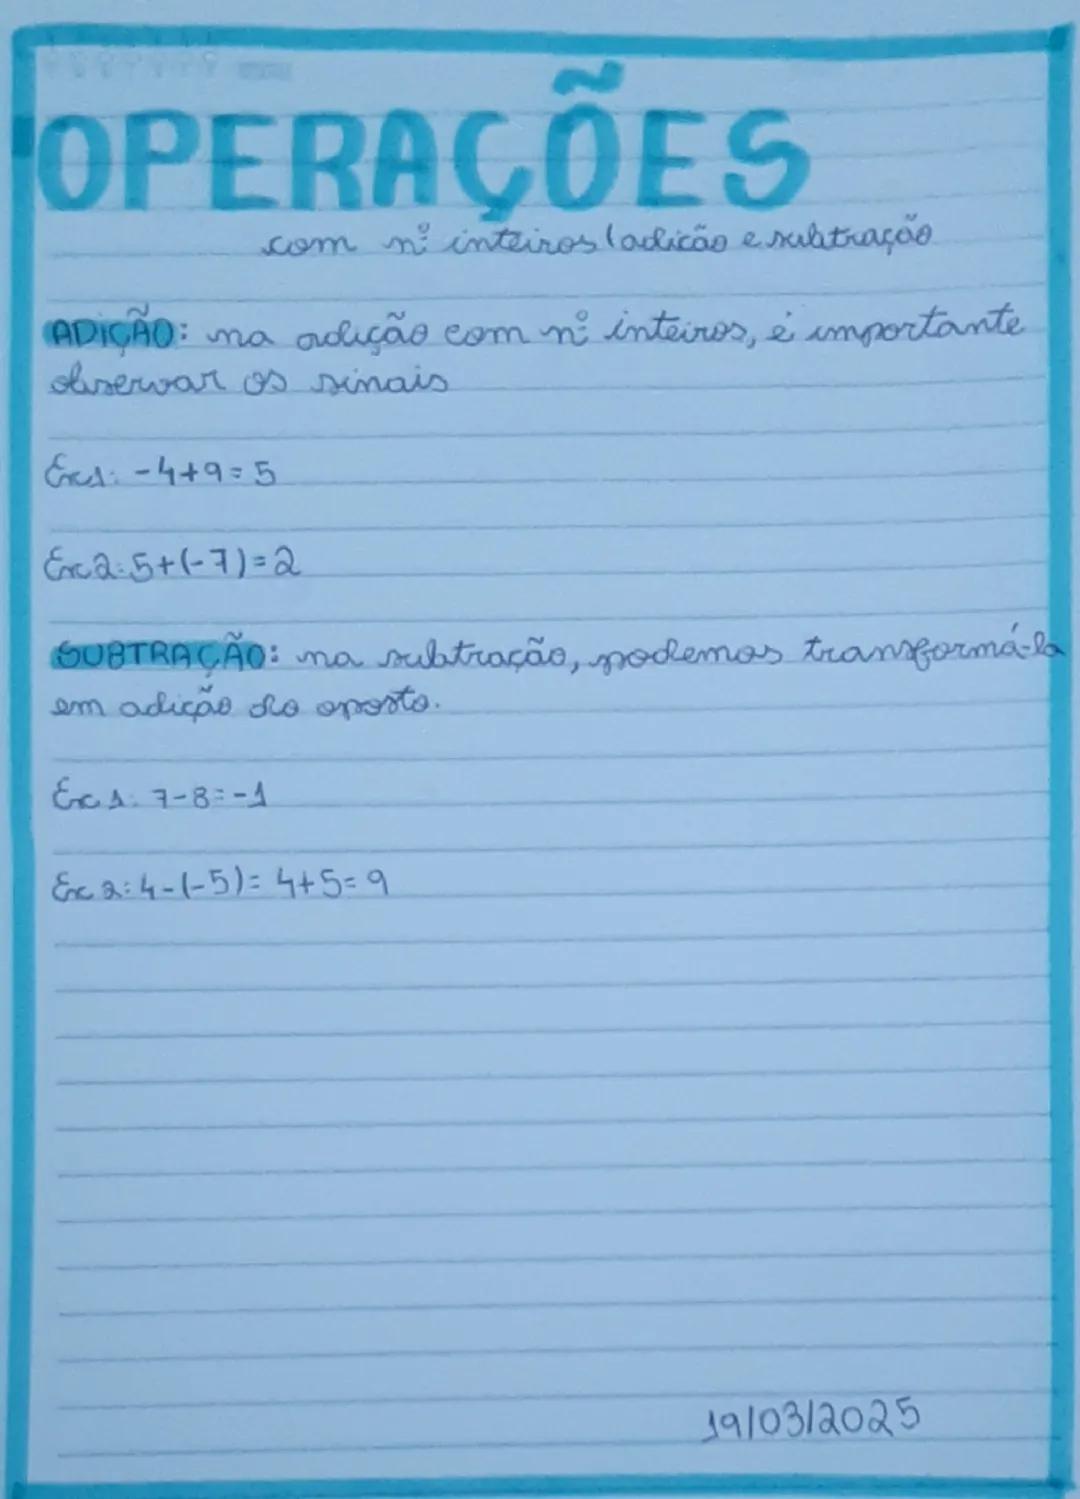 OPERAÇÕES
com nº inteiros (adicão e subtração
ADIÇÃO: na adição com nº inteiros, é importante
observar os sinais
Ex1: -4+9=5
Ex2: 5+(-7)=2
SUBTRAÇÃO: na subtração, podemos transformá-la
em adição do oposto.
Ex 1: 7-8=-1
Ex 2: 4-(-5)= 4+5=9
19/03/2025